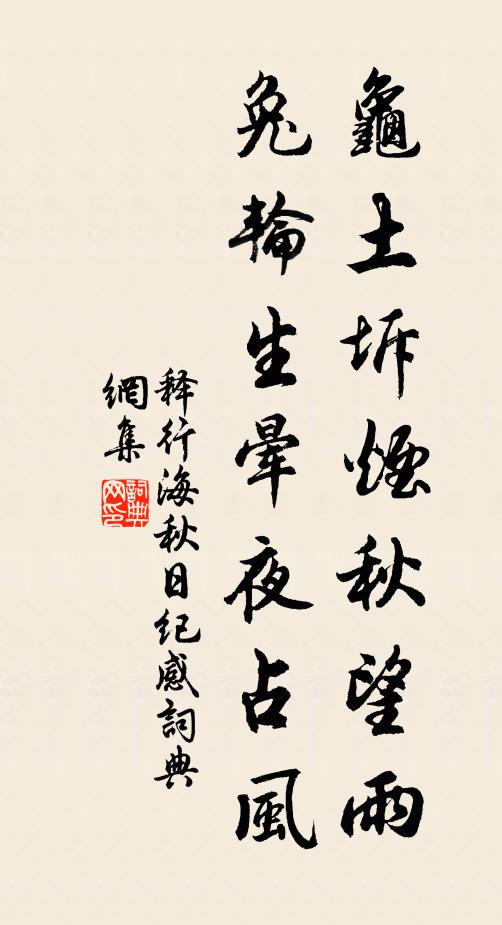 龜土坼煙秋望雨
兔輪生暈夜占風
释行海秋日纪感詞典
網集
詞典網印